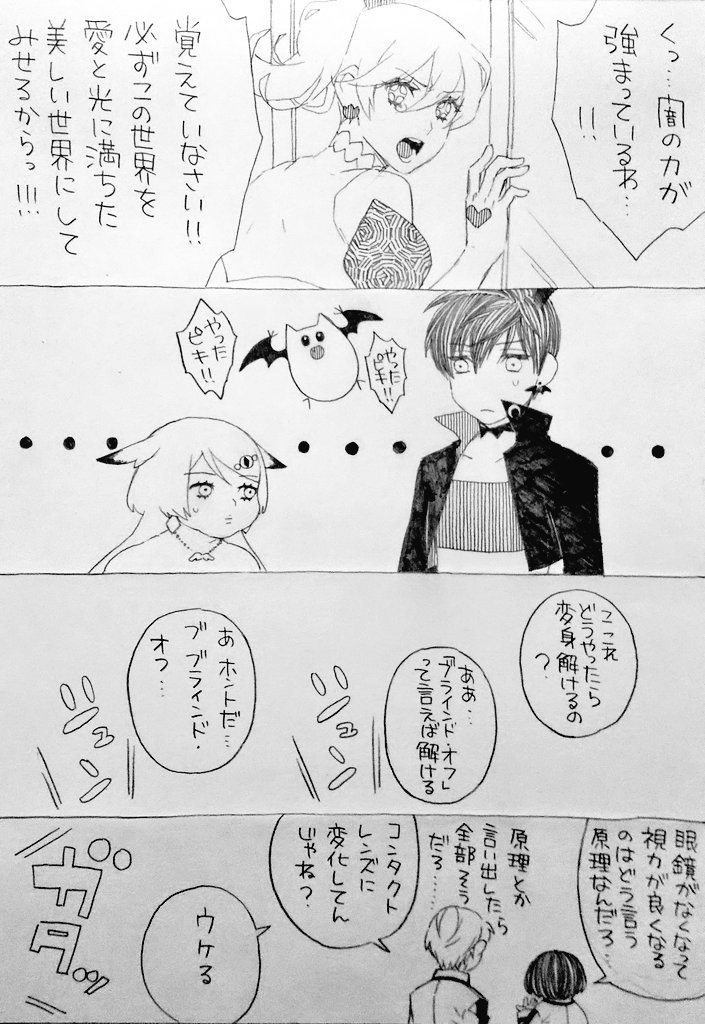 くっ…闇の力が
強まっているわ…
!!
覚えていなさい!!
必ずこの世界を
愛と光に満ちた
美しい世界にして
みせるからっ!!!
やった
ピキ!!
やった
ピキ!!
ここれ
どうやったら
変身解けるの
?
ああ…
「ブラインド・オフ」
って言えば解ける
ジュン
あ ホントだ…
ブ ブラインド・
オフ…
ジュン
眼鏡がなくなって
視力が良くなる
のはどう言う
原理なんだろ…
原理とか
言い出したら
全部そう
だろ……
コンタクト
レンズに
変化してん
じゃね?
ウケる
ガタッ